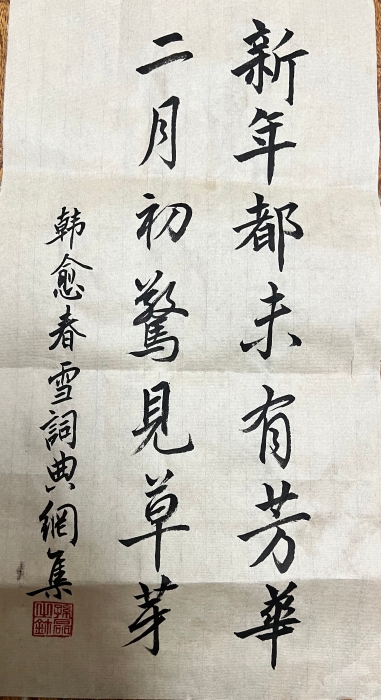 新年都未有芳華
二月初驚見草芽
韩愈春雪詞典網集